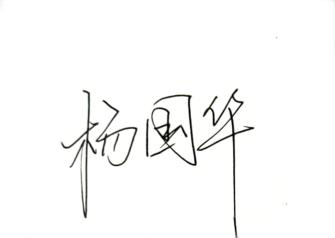 杨国华